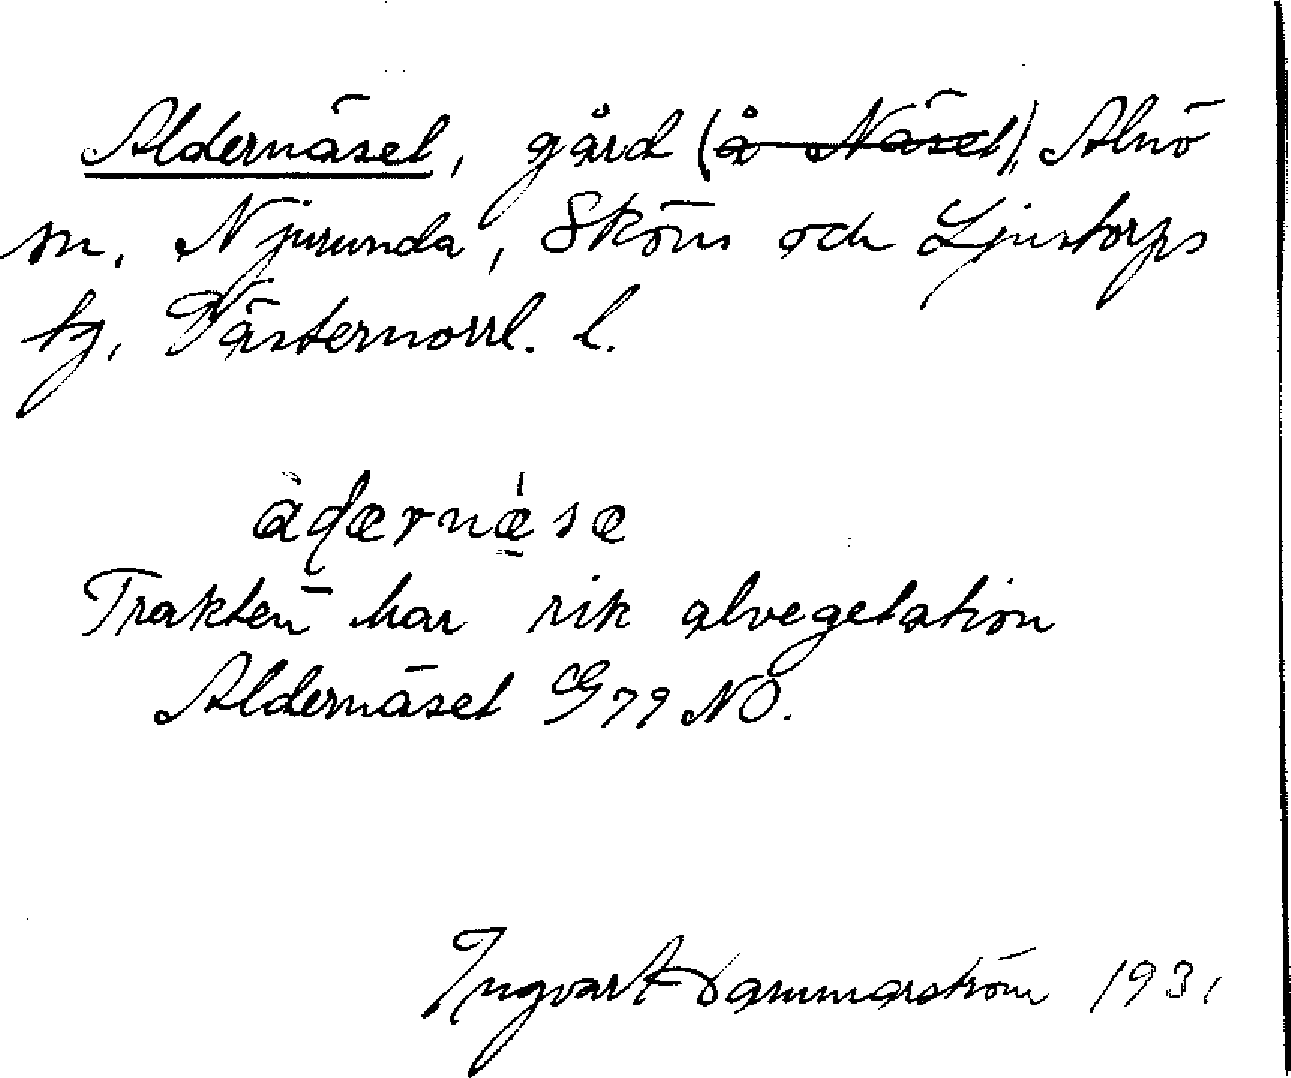 Aldernäset, gård (å Näset), Alnö
sn, Njurunda, Sköns och Ljustorps
tg, Västernorrl. l.
Trakten har rik alvegetation
Aldernäset G 79 NO.
Ingvart Hammarström 1931